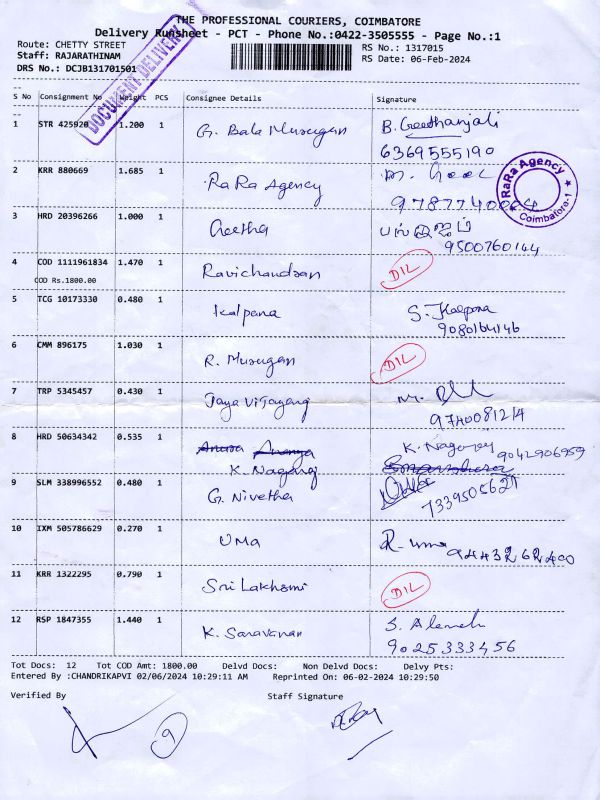 THE PROFESSIONAL COURIERS, COIMBATORE
Delivery Runsheet - PCT - Phone No.:0422-3505555 - Page No.:1
Route: CHETTY STREET
Staff: RAJARATHINAM
DRS No.: DCJB131701501
RS No.: 1317015
RS Date: 06-Feb-2024
DOCUMENT DELIVERY
S No Consignment No Weight PCS Consignee Details Signature
1 STR 425920 1.200 1 G. Bala Murugan B. Geethanjali
6369555190
2 KRR 880669 1.685 1 RaRa Agency
9787740064
RaRa Agency
Coimbatore-1
3 HRD 20396266 1.000 1 Geetha
9500760144
4 COD 1111961834 1.470 1 Ravichandran DIL
COD Rs.1800.00
5 TCG 10173330 0.480 1 Kalpana S. Kalpana
9080164146
6 CMM 896175 1.030 1 R. Murugan DIL
7 TRP 5345457 0.430 1 Jaya Vijayaraj
9740081214
8 HRD 50634342 0.535 1 Ananya K. Nagaraj 9042906959
K. Nagaraj
9 SLM 338996552 0.480 1 G. Nivetha
7339505621
10 IXM 505786629 0.270 1 UMA R. Uma 9443262400
11 KRR 1322295 0.790 1 Sri Lakhsmi DIL
12 RSP 1847355 1.440 1 K. Saravanan
9025333456
Tot Docs: 12 Tot COD Amt: 1800.00 Delvd Docs: Non Delvd Docs: Delvy Pts:
Entered By :CHANDRIKAPVI 02/06/2024 10:29:11 AM Reprinted On: 06-02-2024 10:29:50
Verified By Staff Signature
9